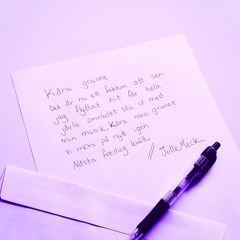 Kära granne.
Det är nu ett faktum att sen
jag flyttat hit får hela
jävla området stå ut med
min musik. Kära nära granne
vi möts på nytt igen.
Nästa fredag kväll.
// JulleMeck